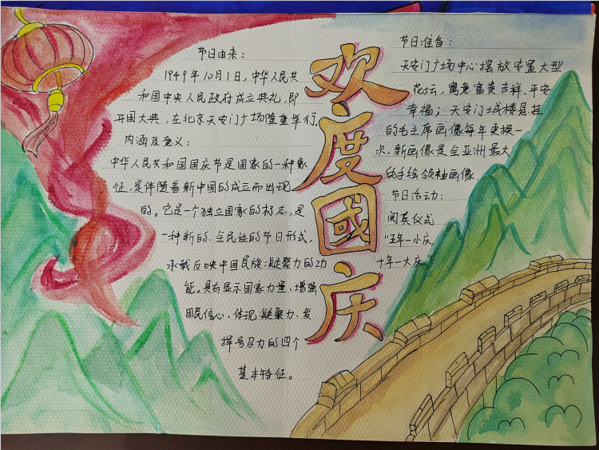 节日由来：
1949年10月1日，中华人民共
和国中央人民政府成立典礼，即
开国大典，在北京天安门广场隆重举行。
内涵及意义：
中华人民共和国国庆节是国家的一种象
征，是伴随着新中国的成立而出现
的。它是一个独立国家的标志，是
一种新的、全民性的节日形式，
承载反映中国民族凝聚力的功
能。具有显示国家力量、增强
国民信心，体现凝聚力，发
挥号召力的四个
基本特征。
欢度國庆
节日准备：
天安门广场中心摆放安置大型
花坛，寓意富贵吉祥、平安
幸福；天安门城楼悬挂
的毛主席画像每年更换一
次，新画像是全亚洲最大
的手绘领袖画像
节日活动：
阅英仪式
“五年一小庆，
十年一大庆”